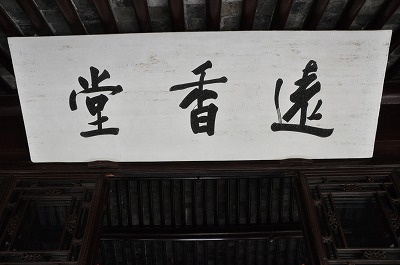 遠香堂